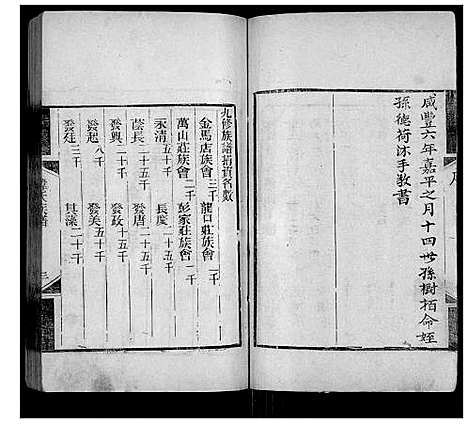 咸豐六年嘉平之月十四世孫樹栢命姪
孫德荷沐手敬書
九修族譜捐貲名數
金馬店族會 三千 龍口莊族會 一千
萬山莊族會 二千 彭家莊族會 一千
永清 五十千 長慶 二十五千
蔭長 二十五千 發唐 二十五千
發興 二十千 發政 二十五千
發起 八千 發美 二十五千
發廷 三千 其漾 二十千
三